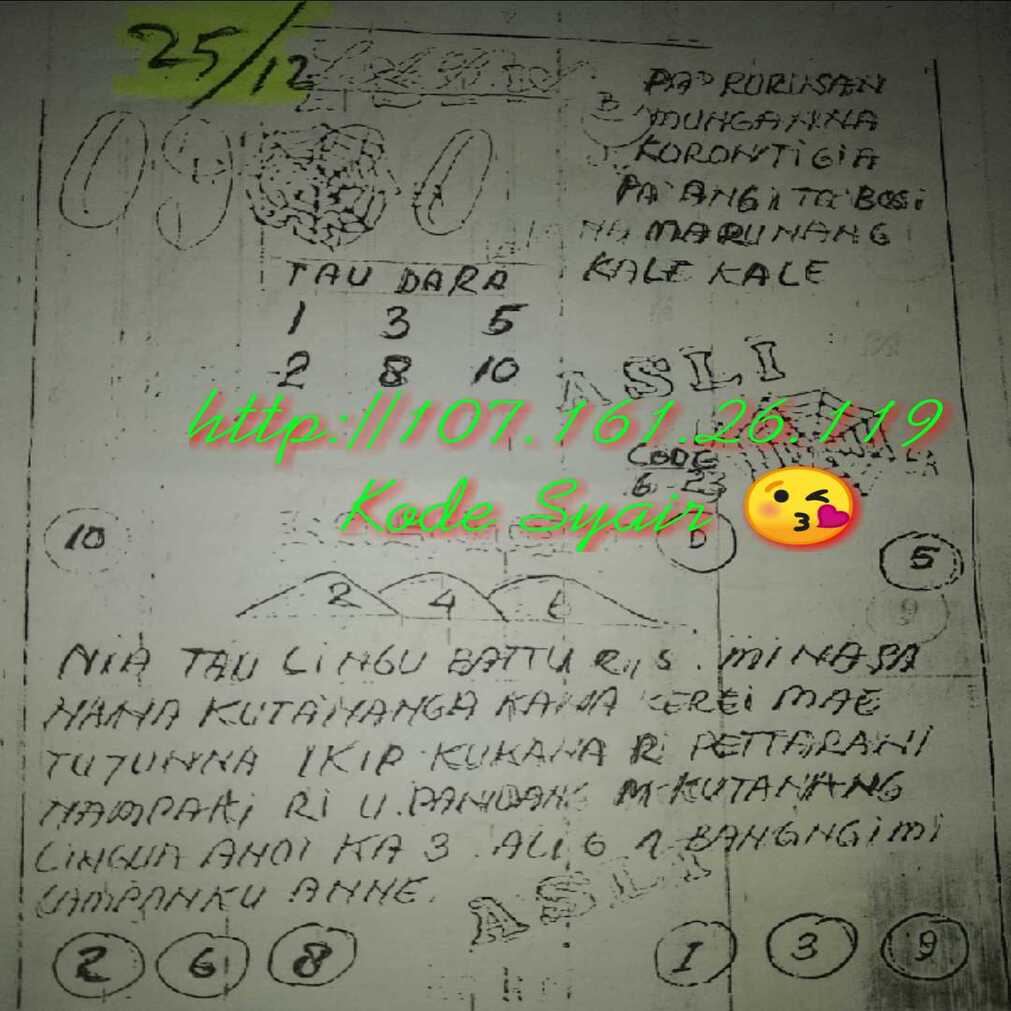 25/12
PA'RURUSAN
B
MUNGANNA
KORONTIGIA
PA'ANGI TA'BOSI
NA MARUNANG
KALE KALE
090 0
TAU DARA
1 3 5
2 8 10
ASLI
http://107.161.26.119
CODE
6
Kode Syair
10
D
5
2 4 6
9
NIA TAU LINGU BATTU RI S. MINASA
NANA KUTANANGA KANA KEREI MAE
TUJUNNA IKIP KUKANA RI PETTARANI
NAMPAKI RI U. PANDANG KUTANANG
LINGUA ANDI KA 3 ALI 6 BANGNGIMI
LAMPANKU ANNE.
ASLI
2 6 8 I 3 9